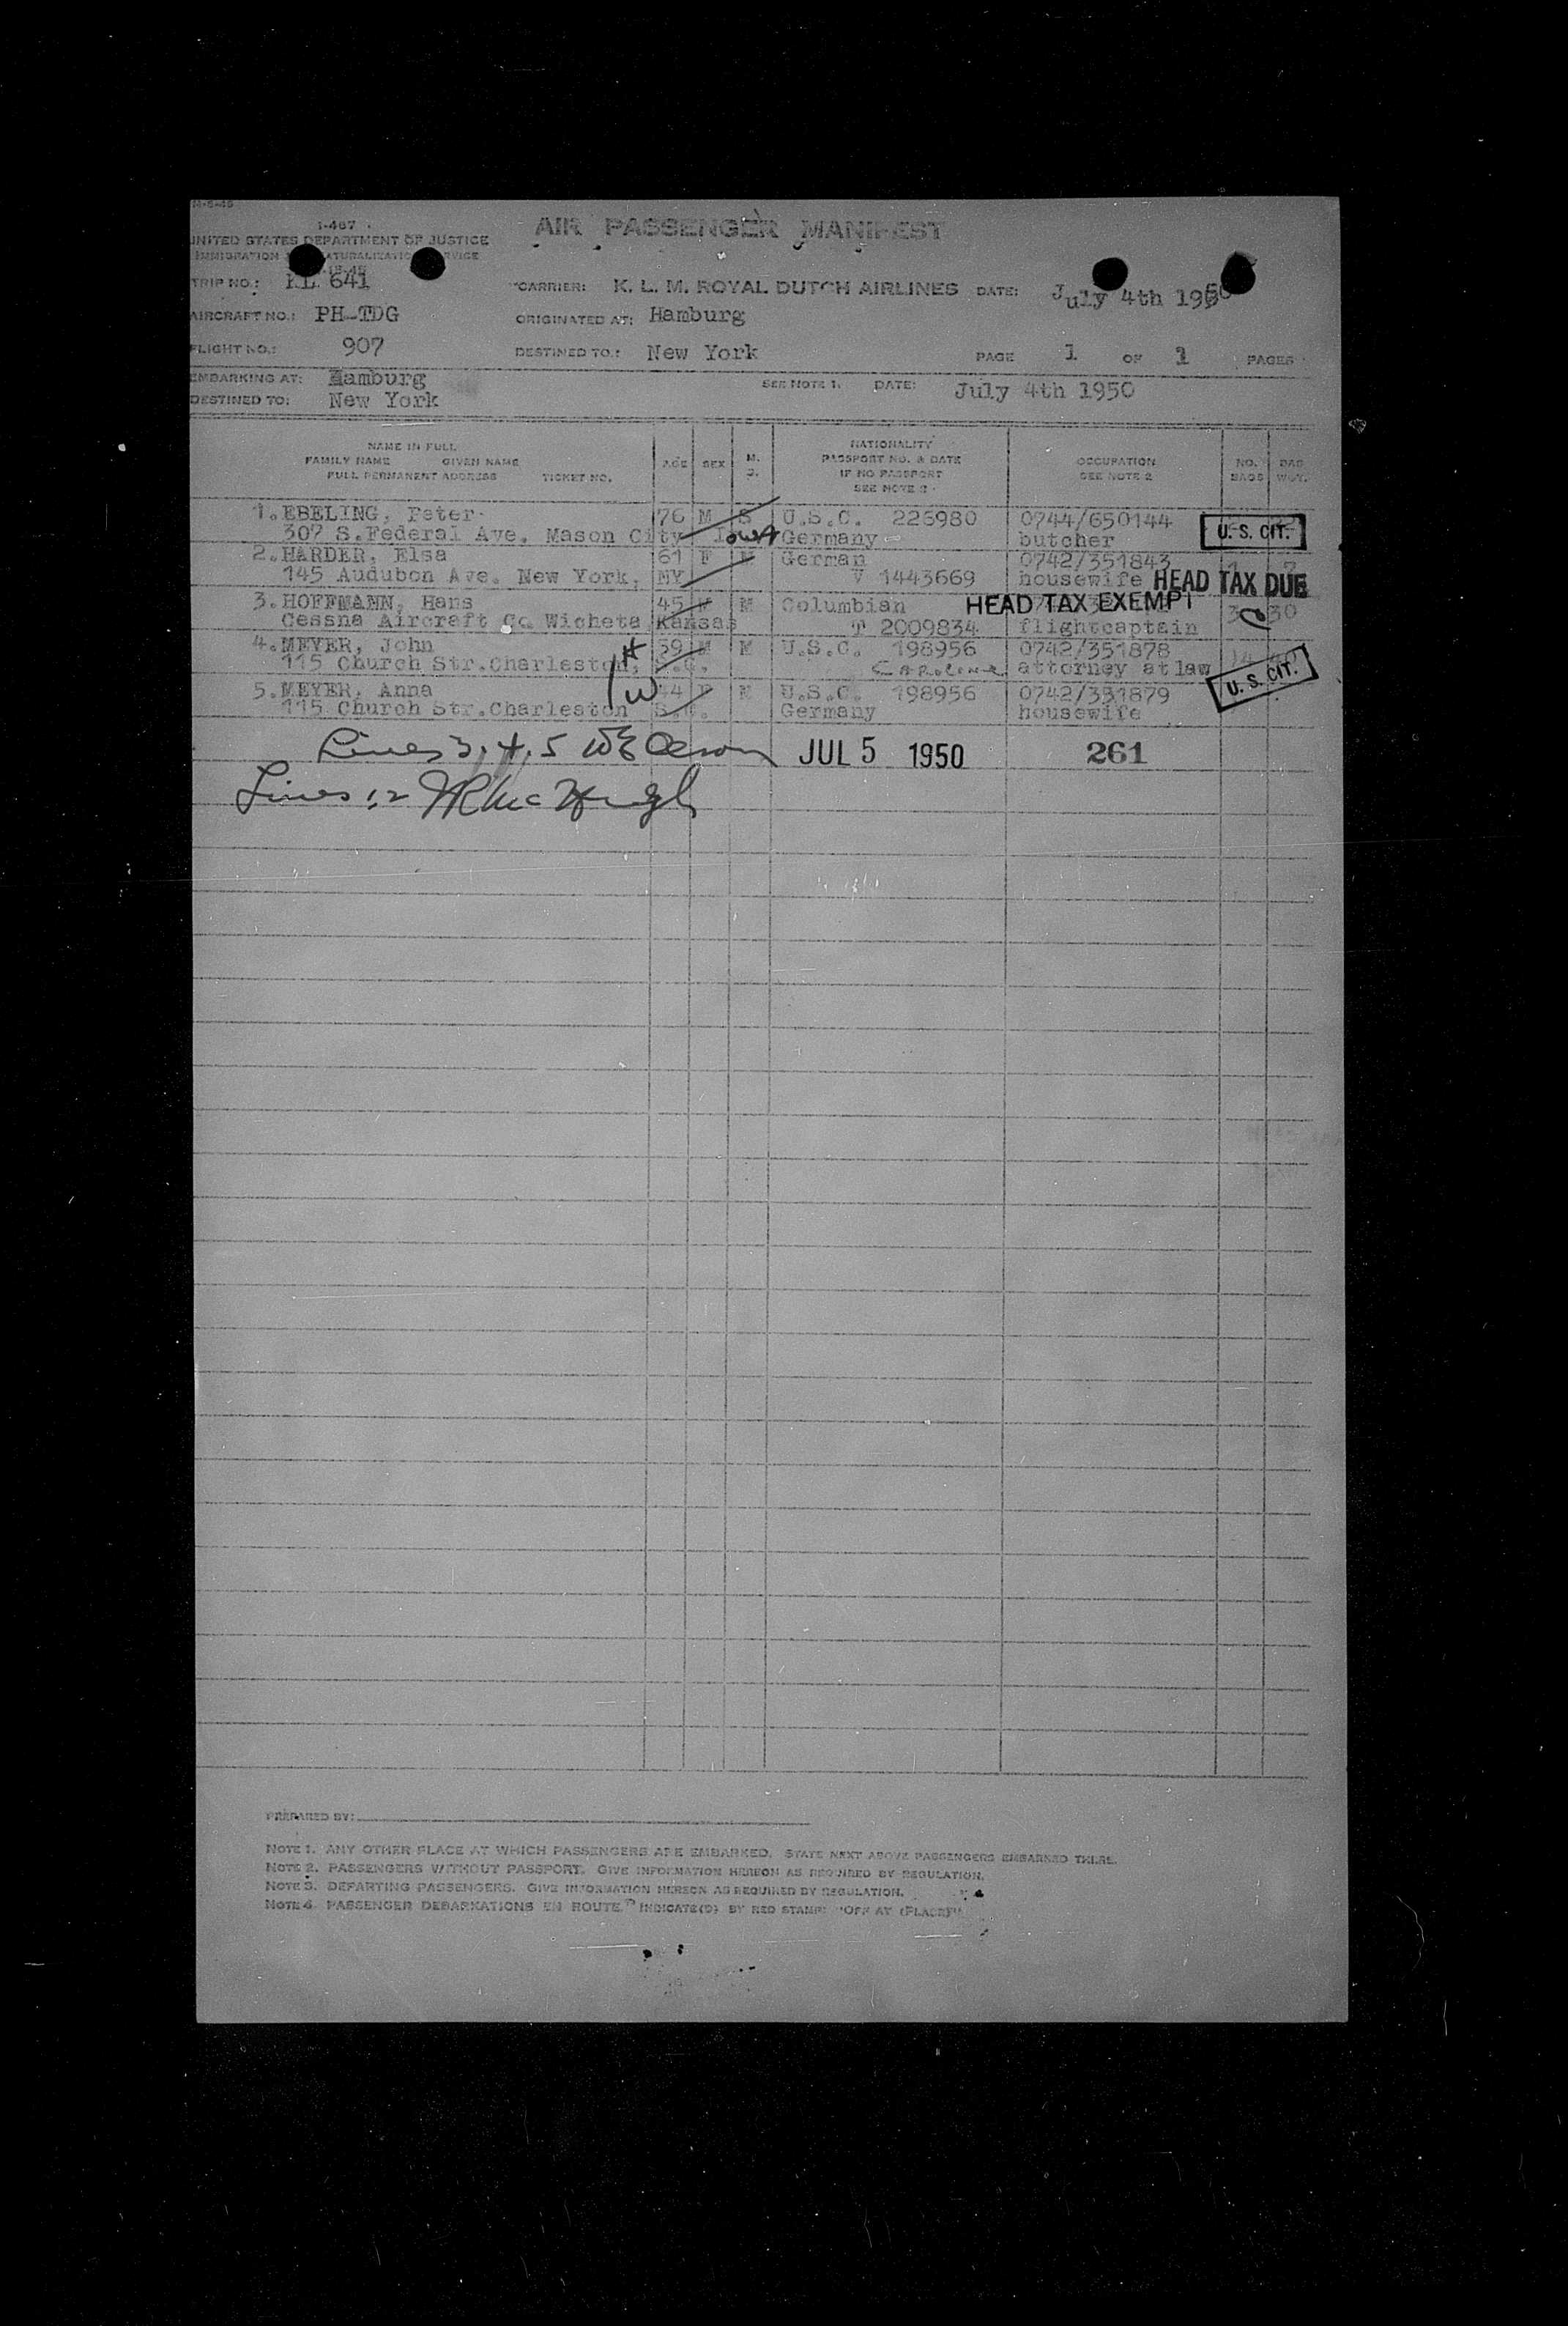 I-467
UNITED STATES DEPARTMENT OF JUSTICE
AIR PASSENGER MANIFEST
TRIP NO.: KL 641
CARRIER: K. L. M. ROYAL DUTCH AIRLINES DATE: July 4th 1950
AIRCRAFT NO.: PH-TDG
ORIGINATED AT: Hamburg
FLIGHT NO.: 907
DESTINED TO: New York
PAGE 1 OF 1 PAGES
EMBARKING AT: Hamburg
SEE NOTE 1. DATE: July 4th 1950
DESTINED TO: New York
NAME IN FULL
FAMILY NAME GIVEN NAME
FULL PERMANENT ADDRESS TICKET NO.
AGE SEX M. S.
NATIONALITY
PASSPORT NO. & DATE
IF NO PASSPORT
SEE NOTE 2
OCCUPATION
SEE NOTE 2
NO. BAGS
BAG WGT.
1. EBELING, Peter 76 M S U.S.C. 226980 0744/650144
307 S.Federal Ave. Mason City Iowa Germany butcher U. S. CIT.
2. HARDER, Elsa 61 F M German 0742/351843
145 Audubon Ave. New York, NY V 1443669 housewife HEAD TAX DUE
3. HOFFMANN, Hans 45 M M Columbian HEAD TAX EXEMPT
Cessna Aircraft Co. Wicheta Kansas T 2009834 flightcaptain
4. MEYER, John 59 M M U.S.C. 198956 0742/351878
115 Church Str.Charleston, S.C. attorney at law
5. MEYER, Anna 44 F M U.S.C. 198956 0742/351879 U. S. CIT.
115 Church Str.Charleston S.C. Germany housewife
Lines 3, 4, 5
JUL 5 1950
261
Lines 1,2
PREPARED BY:
NOTE 1. ANY OTHER PLACE AT WHICH PASSENGERS ARE EMBARKED, STATE NEXT ABOVE PASSENGERS EMBARKED THERE.
NOTE 2. PASSENGERS WITHOUT PASSPORT, GIVE INFORMATION HEREON AS REQUIRED BY REGULATION.
NOTE 3. DEPARTING PASSENGERS. GIVE INFORMATION HEREON AS REQUIRED BY REGULATION.
NOTE 4. PASSENGER DEBARKATIONS EN ROUTE, INDICATE(D) BY RED STAMP: "OFF AT (PLACE)"